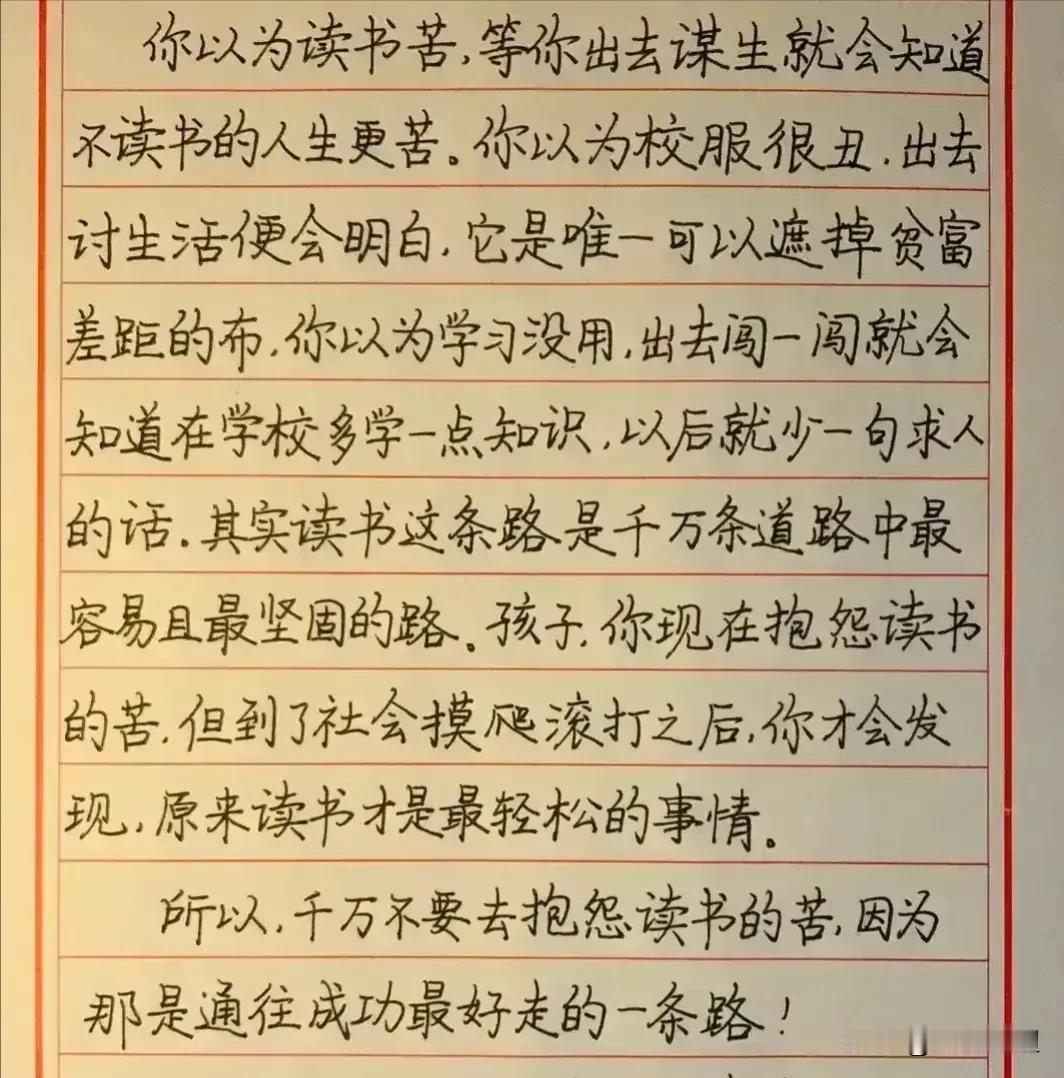 你以为读书苦,等你出去谋生就会知道
不读书的人生更苦。你以为校服很丑.出去
讨生活便会明白,它是唯一可以遮掉贫富
差距的布,你以为学习没用,出去闯一闯就会
知道在学校多学一点知识,以后就少一句求人
的话.其实读书这条路是千万条道路中最
容易且最坚固的路。孩子.你现在抱怨读书
的苦,但到了社会摸爬滚打之后,你才会发
现,原来读书才是最轻松的事情。
所以,千万不要去抱怨读书的苦,因为
那是通往成功最好走的一条路!